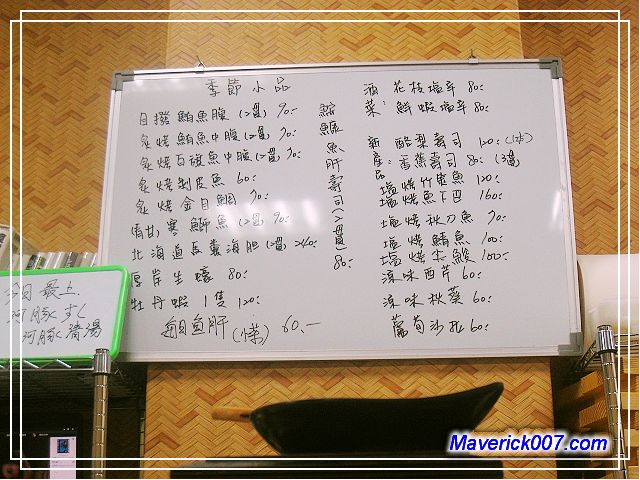 季節小品
目撥鮪魚腹(2貫)90.-
炙烤鮪魚中腹(2貫)70.-
炙烤白旗魚中腹(2貫)70.-
炙烤剥皮魚 60.
炙烤金目鯛 70.-
寒鰤魚(2貫) 90.
北海道馬糞海胆(2貫) 240.
厚岸生蠔 80:
牡丹蝦 1隻 120.-
魚肝 60.-
鮟鱇魚肝壽司(2貫) 80.-
酒菜:
花枝塩辛 80.-
鮮蝦塩辛 80.-
新產品:
酪梨壽司 120.-
香蕉壽司 80.
塩烤竹筴魚 120.-
塩烤魚下巴 160.-
塩烤秋刀魚 70.-
塩烤鯖魚 100.-
塩烤 100.-
涼味西芹 60.-
涼味秋葵 60.-
蘆筍沙拉 60.-
今日最上
河豚すし
河豚清湯
Maverick007.com